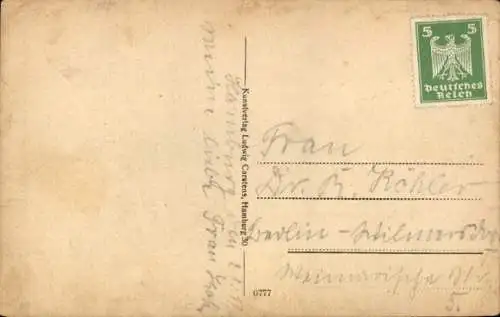 5 5
Deutsches
Reich
Kunstverlag Ludwig Carstens, Hamburg 30
6777
Frau
Dr. K. Köhler
Berlin-Wilmersdorf
Weimarische Str.
5.
Hamburg
Meine liebe Frau